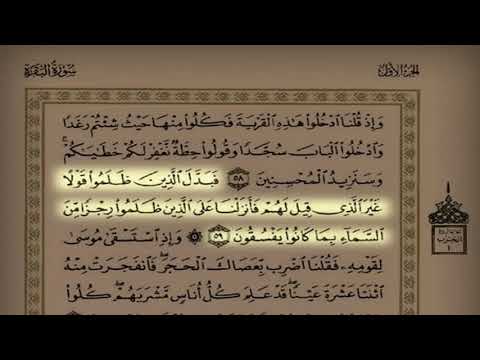 سُورَةُ البَقَرَةِ
الجُزْءُ الأَوَّلُ
وَإِذْ قُلْنَا ادْخُلُوا هَٰذِهِ الْقَرْيَةَ فَكُلُوا مِنْهَا حَيْثُ شِئْتُمْ رَغَدًا
وَادْخُلُوا الْبَابَ سُجَّدًا وَقُولُوا حِطَّةٌ نَّغْفِرْ لَكُمْ خَطَٰيَٰكُمْ ۚ
وَسَنَزِيدُ الْمُحْسِنِينَ ٥٨ فَبَدَّلَ الَّذِينَ ظَلَمُوا قَوْلًا
غَيْرَ الَّذِي قِيلَ لَهُمْ فَأَنزَلْنَا عَلَى الَّذِينَ ظَلَمُوا رِجْزًا مِّنَ
السَّمَاءِ بِمَا كَانُوا يَفْسُقُونَ ٥٩ ۞ وَإِذِ اسْتَسْقَىٰ مُوسَىٰ
لِقَوْمِهِ فَقُلْنَا اضْرِب بِّعَصَاكَ الْحَجَرَ ۖ فَانفَجَرَتْ مِنْهُ
اثْنَتَا عَشْرَةَ عَيْنًا ۖ قَدْ عَلِمَ كُلُّ أُنَاسٍ مَّشْرَبَهُمْ ۖ كُلُوا